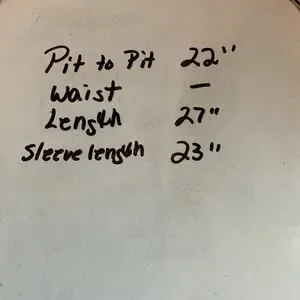 Pit to Pit 22"
Waist —
Length 27"
Sleeve length 23"